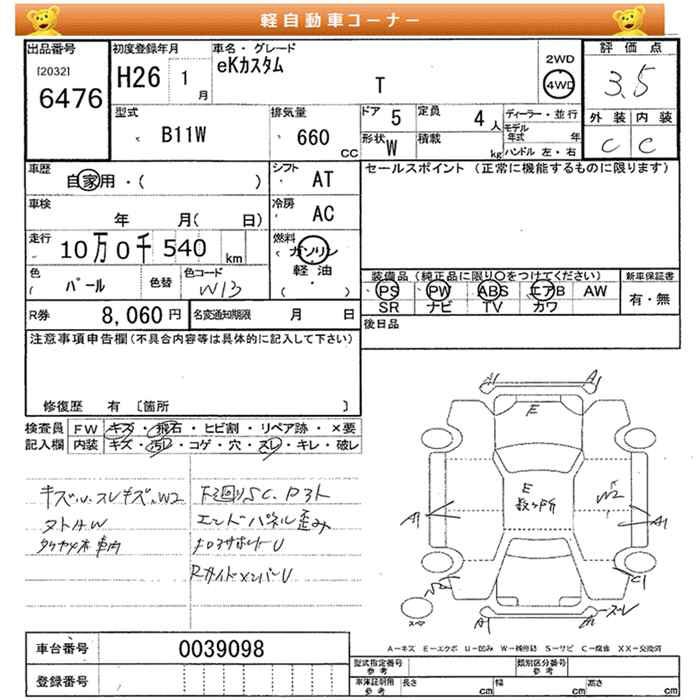 軽自動車コーナー
出品番号
[2032]
6476
初度登録年月
H26 1月
車名・グレード
eKカスタム
T
2WD
4WD
評価点
3.5
外装 内装
C C
型式
B11W
排気量
660 CC
ドア 5
定員 4人
形状 W
積載 kg
ディーラー・並行
モデル年式 年
ハンドル 左・右
車歴
自家用・( )
シフト
AT
セールスポイント (正常に機能するものに限ります)
車検
年 月( 日)
冷房
AC
走行
10万0千540 km
燃料
ガソリン
軽油
( )
色
パール
( )
色替
色コード
W13
装備品 (純正品に限り○をつけてください)
PS PW ABS エアB AW
SR ナビ TV カワ
新車保証書
有・無
R券 8,060円
名変通知期限 月 日
後日品
注意事項申告欄(不具合内容等は具体的に記入して下さい)
修復歴 有 [箇所 ]
検査員記入欄
FW キズ・飛石・ヒビ割・リペア跡・×要
内装 キズ・汚レ・コゲ・穴・スレ・キレ・破レ
キズU.スレキズ.W2
下廻りSC.
エンドパネル歪み
RサイドメンバーU
A1 A1
E
E
数ヶ所
W2
A1 A1
W2 C1
A1 A1 スレ
A-キズ E-エクボ U-凹み W-補修跡 S-サビ C-腐食 XX-交換済
車台番号 0039098
登録番号
型式指定番号 参考
類別区分番号 参考
車庫証明用 参考 長さ cm 幅 cm 高さ cm